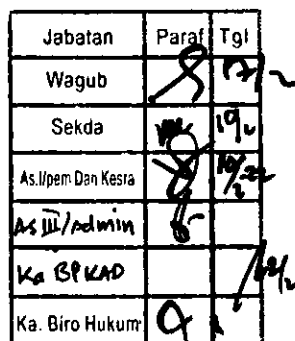 Jabatan Paraf Tgl
Wagub 17/2
Sekda 10/2
As.I/pem Dan Kesra 10/2-22
As III/Admin
Ka BPKAD
Ka. Biro Hukum